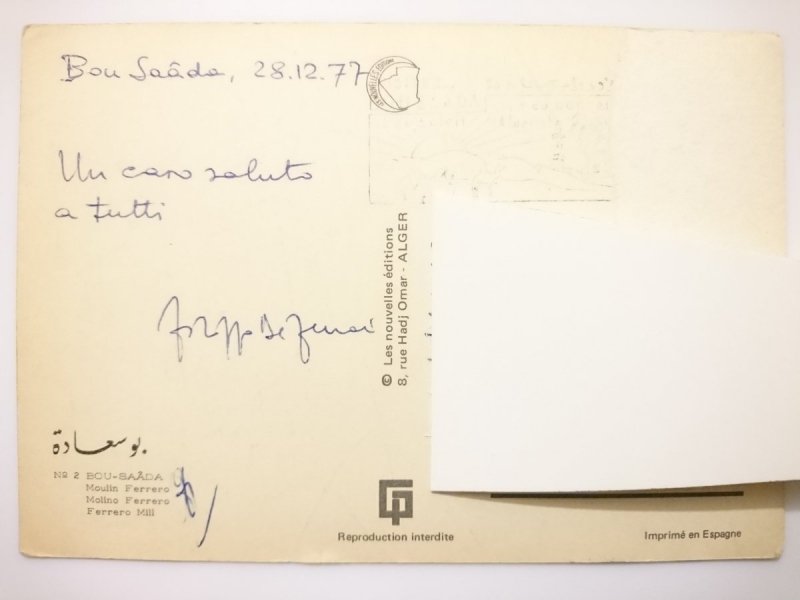 Bou Saâda, 28.12.77
LES NOUVELLES ÉDITIONS
Un caro saluto
a tutti
© Les nouvelles éditions
8, rue Hadj Omar - ALGER
بوسعادة
Nº 2 BOU-SAÂDA
Moulin Ferrero
Molino Ferrero
Ferrero Mill
Reproduction interdite
Imprimé en Espagne